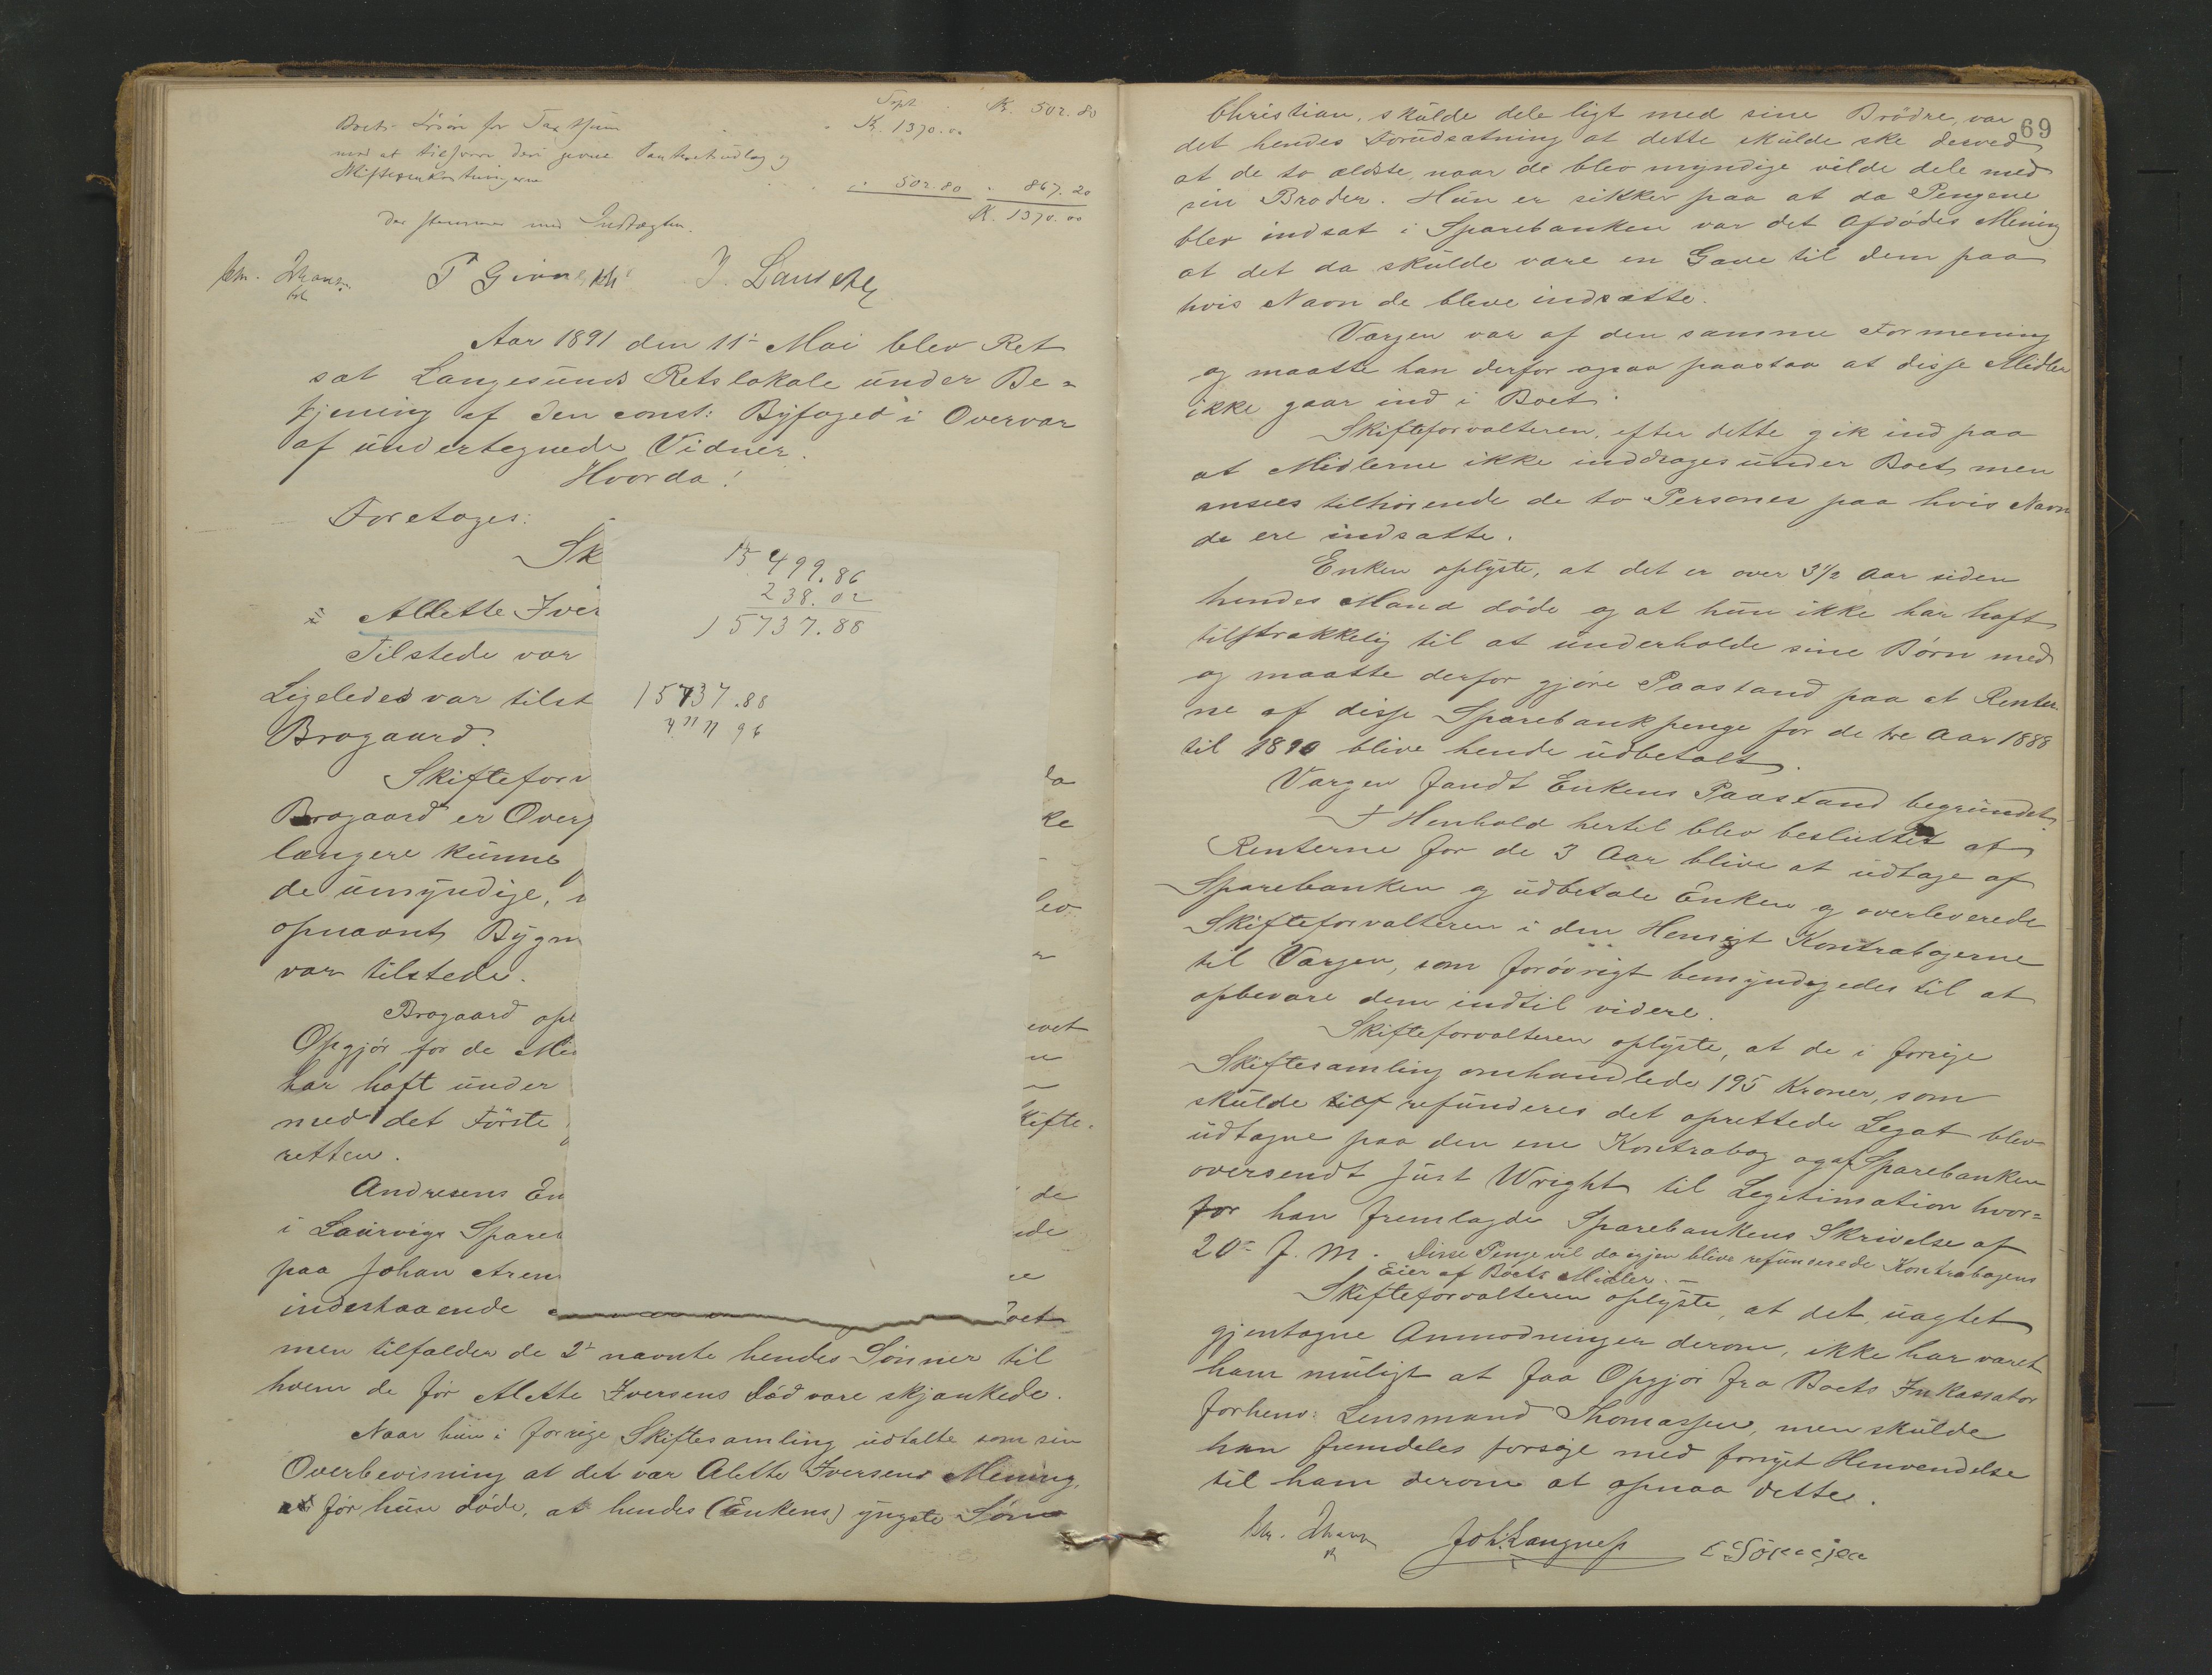 Tspt. Kr. 502.80
Boets
Kr. 1370.00
med at tilsvare den Panthaverudlæg og
Skifteomkostningerne
502.80 " 867.20
Kr. 1370.00
der stemmer med Indtægten.
Aar 1891 den 11te Mai blev Ret
sat Langesunds Retslokale under Be=
tjening af den const: Byfoged i Overvær
af undertegnede Vidner.
Hvorda!
Foretoges:
Sk
Allette Iver
Tilstede var
Ligeledes var tilst
Brogaard.
Skifteforv
Brogaard er Overf
længere kunne
de umyndige,
opnævnt Bygm
var tilstede.
Brogaard opl
Opgjör for de Mid
har haft under
med det Förste
retten.
Andresens En
i Laurvigs Spareb
paa Johan Aren
indestaaende
men tilfalder de 2de nævnte hendes Sönner til
hvem de för Alette Iversens Död vare skjænkede.
Naar hun i forrige Skiftesamling udtalte som sin
Overbevisning at det var Alette Iversens Mening,
för hun döde, at hendes (Enkens) yngste Sön
15499.86
238.02
15737.88
15737.88
96
da
ke
lev
evet
kifte.
de
nde
Boet
69
Christian, skulde dele ligt med sine Brödre, var
det hendes Forudsætning at dette skulde ske derved
at de to ældste, naar de blev myndige vilde dele med
sin Broder. Hun er sikker paa at da Pengene
blev indsat i Sparebanken var det Afdödes Mening
at det da skulde være en Gave til dem paa
hvis Navn de bleve indsatte.
Værgen var af den samme Formening
og maatte han derfor ogsaa paastaa at disse Midler
ikke gaar ind i Boet.
Skifteforvalteren, efter dette gik ind paa
at Midlerne ikke inddrages under Boet, men
ansees tilhörende de to Personer paa hvis Navn
de ere indsatte.
Enken oplyste, at det er over 3½ Aar siden
hendes Mand döde og at hun ikke har haft
tilstrækkelig til at underholde sine Börn med
og maatte derfor gjöre Paastand paa at Renter
ne af disse Sparebankpenge for de tre Aar 1888
til 1890 blive hende udbetalt.
Værgen fandt Enkens Paastand begrundet.
I Henhold hertil blev besluttet at
Renterne for de 3 Aar blive at udtage af
Sparebanken og udbetale Enken og overleverede
Skifteforvalteren i den Hensigt Kontrabøgerne
til Værgen, som forövrigt bemyndigedes til at
opbevare dem indtil videre.
Skifteforvalteren oplyste, at de i forrige
Skiftesamling omhandlede 195 Kroner, som
skulde refunderes det oprettede Legat blev
udtagne paa den ene Kontrabog og af Sparebanken
oversendt Just Wright til Legitimation hvor=
for han fremlagde Sparebankens Skrivelse af
20de f. M. Disse Penge vil da igjen blive refunderede Kontrabogens
Eier af Boets Midler. —
Skifteforvalteren oplyste, at det, uagtet
gjentagne Anmodninger derom, ikke har været
ham muligt at faa Opgjör fra Boets Inkassator
forhenv: Lensmand Thomassen, men skulde
han fremdeles forsöge med fornyet Henvendelse
til ham derom at opnaa dette.
Joh. Langness